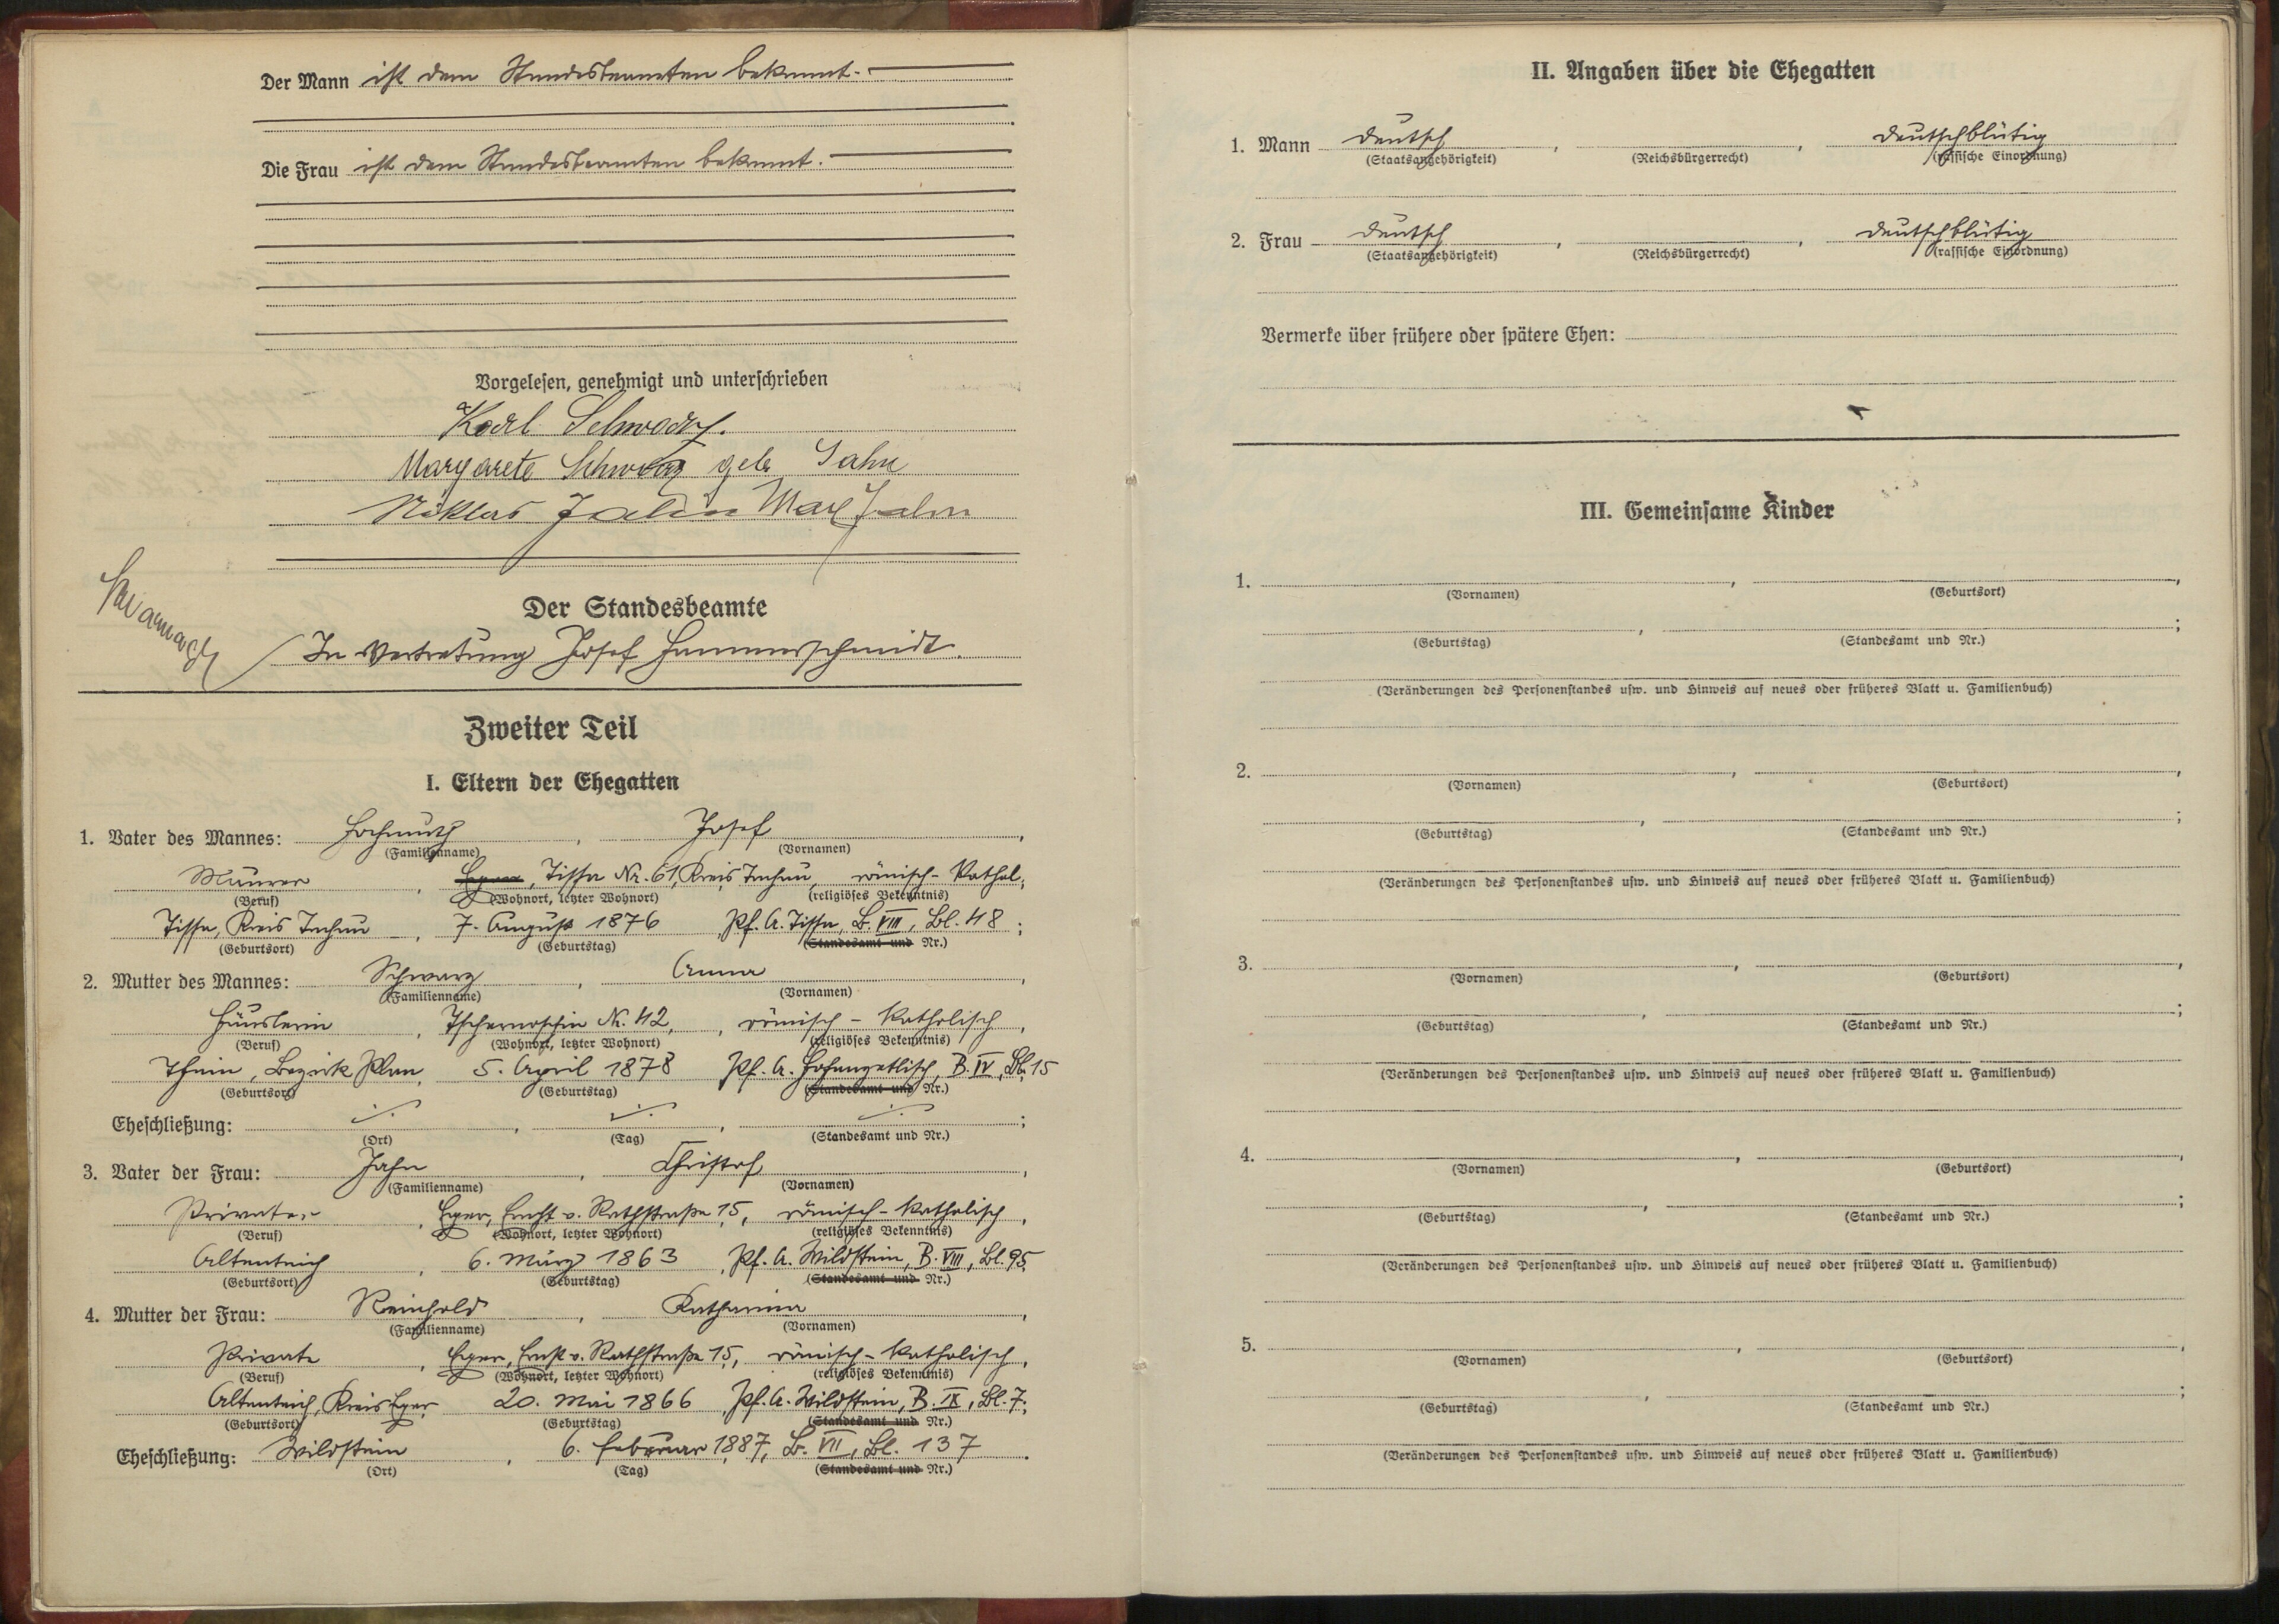 Der Mann ist dem Standesbeamten bekannt.
Die Frau ist dem Standesbeamten bekannt.
Vorgelesen, genehmigt und unterschrieben
Karl Schwarz.
Margarete Schwarz geb Jahn
Niklas Max Jahn
Der Standesbeamte
In Vertretung Josef Hammerschmidt.
Zweiter Teil
I. Eltern der Ehegatten
1. Vater des Mannes: Hochmuth, Josef,
(Familienname) (Vornamen)
Maurer, Eger, Tissa Nr. 61, Kreis Tachau, römisch-kathol.;
(Beruf) (Wohnort, letzter Wohnort) (religiöses Bekenntnis)
Tissa, Kreis Tachau, 7. August 1876, Pf. A. Tissa, B. VIII, Bl. 48;
(Geburtsort) (Geburtstag) (Standesamt und Nr.)
2. Mutter des Mannes: Schwarz, Anna,
(Familienname) (Vornamen)
Häuslerin, Tschernoschin Nr. 42, römisch-katholisch,
(Beruf) (Wohnort, letzter Wohnort) (religiöses Bekenntnis)
Thein, Bezirk Plan, 5. April 1878 Pf. A. Hohenzetlisch, B. IV, Bl. 15
(Geburtsort) (Geburtstag) (Standesamt und Nr.)
Eheschließung: ./. , ./. , ./. ;
(Ort) (Tag) (Standesamt und Nr.)
3. Vater der Frau: Jahn, Christof,
(Familienname) (Vornamen)
Privater, Eger, Ernst v. Rathstraße 15, römisch-katholisch,
(Beruf) (Wohnort, letzter Wohnort) (religiöses Bekenntnis)
Altenteich, 6. März 1863, Pf. A. Wildstein, B. VIII, Bl. 95,
(Geburtsort) (Geburtstag) (Standesamt und Nr.)
4. Mutter der Frau: Reinhold, Katharina,
(Familienname) (Vornamen)
Private, Eger, Ernst v. Rathstraße 15, römisch-katholisch,
(Beruf) (Wohnort, letzter Wohnort) (religiöses Bekenntnis)
Altenteich, Kreis Eger, 20. Mai 1866, Pf. A. Wildstein, B. IX, Bl. 7;
(Geburtsort) (Geburtstag) (Standesamt und Nr.)
Eheschließung: Wildstein, 6. Februar 1887, B. VII, Bl. 137.
(Ort) (Tag) (Standesamt und Nr.)
II. Angaben über die Ehegatten
1. Mann deutsch, , deutschblütig
(Staatsangehörigkeit) (Reichsbürgerrecht) (rassische Einordnung)
2. Frau deutsch, , deutschblütig
(Staatsangehörigkeit) (Reichsbürgerrecht) (rassische Einordnung)
Vermerke über frühere oder spätere Ehen:
III. Gemeinsame Kinder
1. , ,
(Vornamen) (Geburtsort)
, ;
(Geburtstag) (Standesamt und Nr.)
(Veränderungen des Personenstandes usw. und Hinweis auf neues oder früheres Blatt u. Familienbuch)
2. , ,
(Vornamen) (Geburtsort)
, ;
(Geburtstag) (Standesamt und Nr.)
(Veränderungen des Personenstandes usw. und Hinweis auf neues oder früheres Blatt u. Familienbuch)
3. , ,
(Vornamen) (Geburtsort)
, ;
(Geburtstag) (Standesamt und Nr.)
(Veränderungen des Personenstandes usw. und Hinweis auf neues oder früheres Blatt u. Familienbuch)
4. , ,
(Vornamen) (Geburtsort)
, ;
(Geburtstag) (Standesamt und Nr.)
(Veränderungen des Personenstandes usw. und Hinweis auf neues oder früheres Blatt u. Familienbuch)
5. , ,
(Vornamen) (Geburtsort)
, ;
(Geburtstag) (Standesamt und Nr.)
(Veränderungen des Personenstandes usw. und Hinweis auf neues oder früheres Blatt u. Familienbuch)